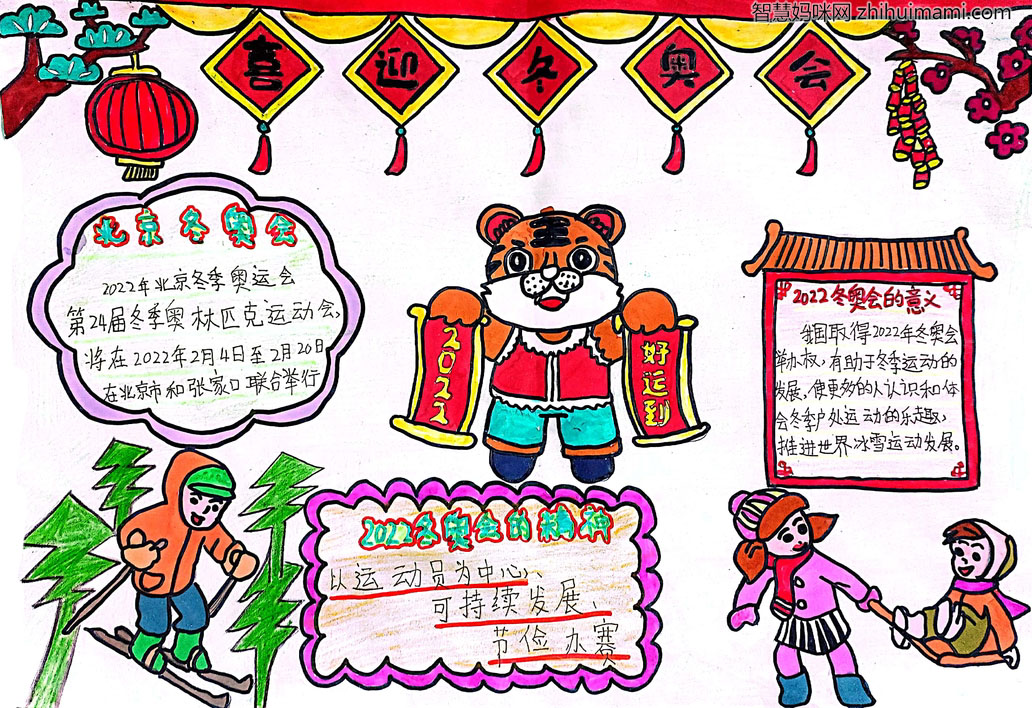 智慧妈咪网 zhihuimami.com
喜迎冬奥会
北京冬奥会
2022年北京冬季奥运会
第24届冬季奥林匹克运动会,
将在2022年2月4日至2月20日
在北京市和张家口联合举行
2022
好运到
2022冬奥会的意义
我国取得2022年冬奥会
举办权,有助于冬季运动的
发展,使更多的人认识和体
会冬季户外运动的乐趣,
推进世界冰雪运动发展。
2022冬奥会的精神
以运动员为中心、
可持续发展、
节俭办赛